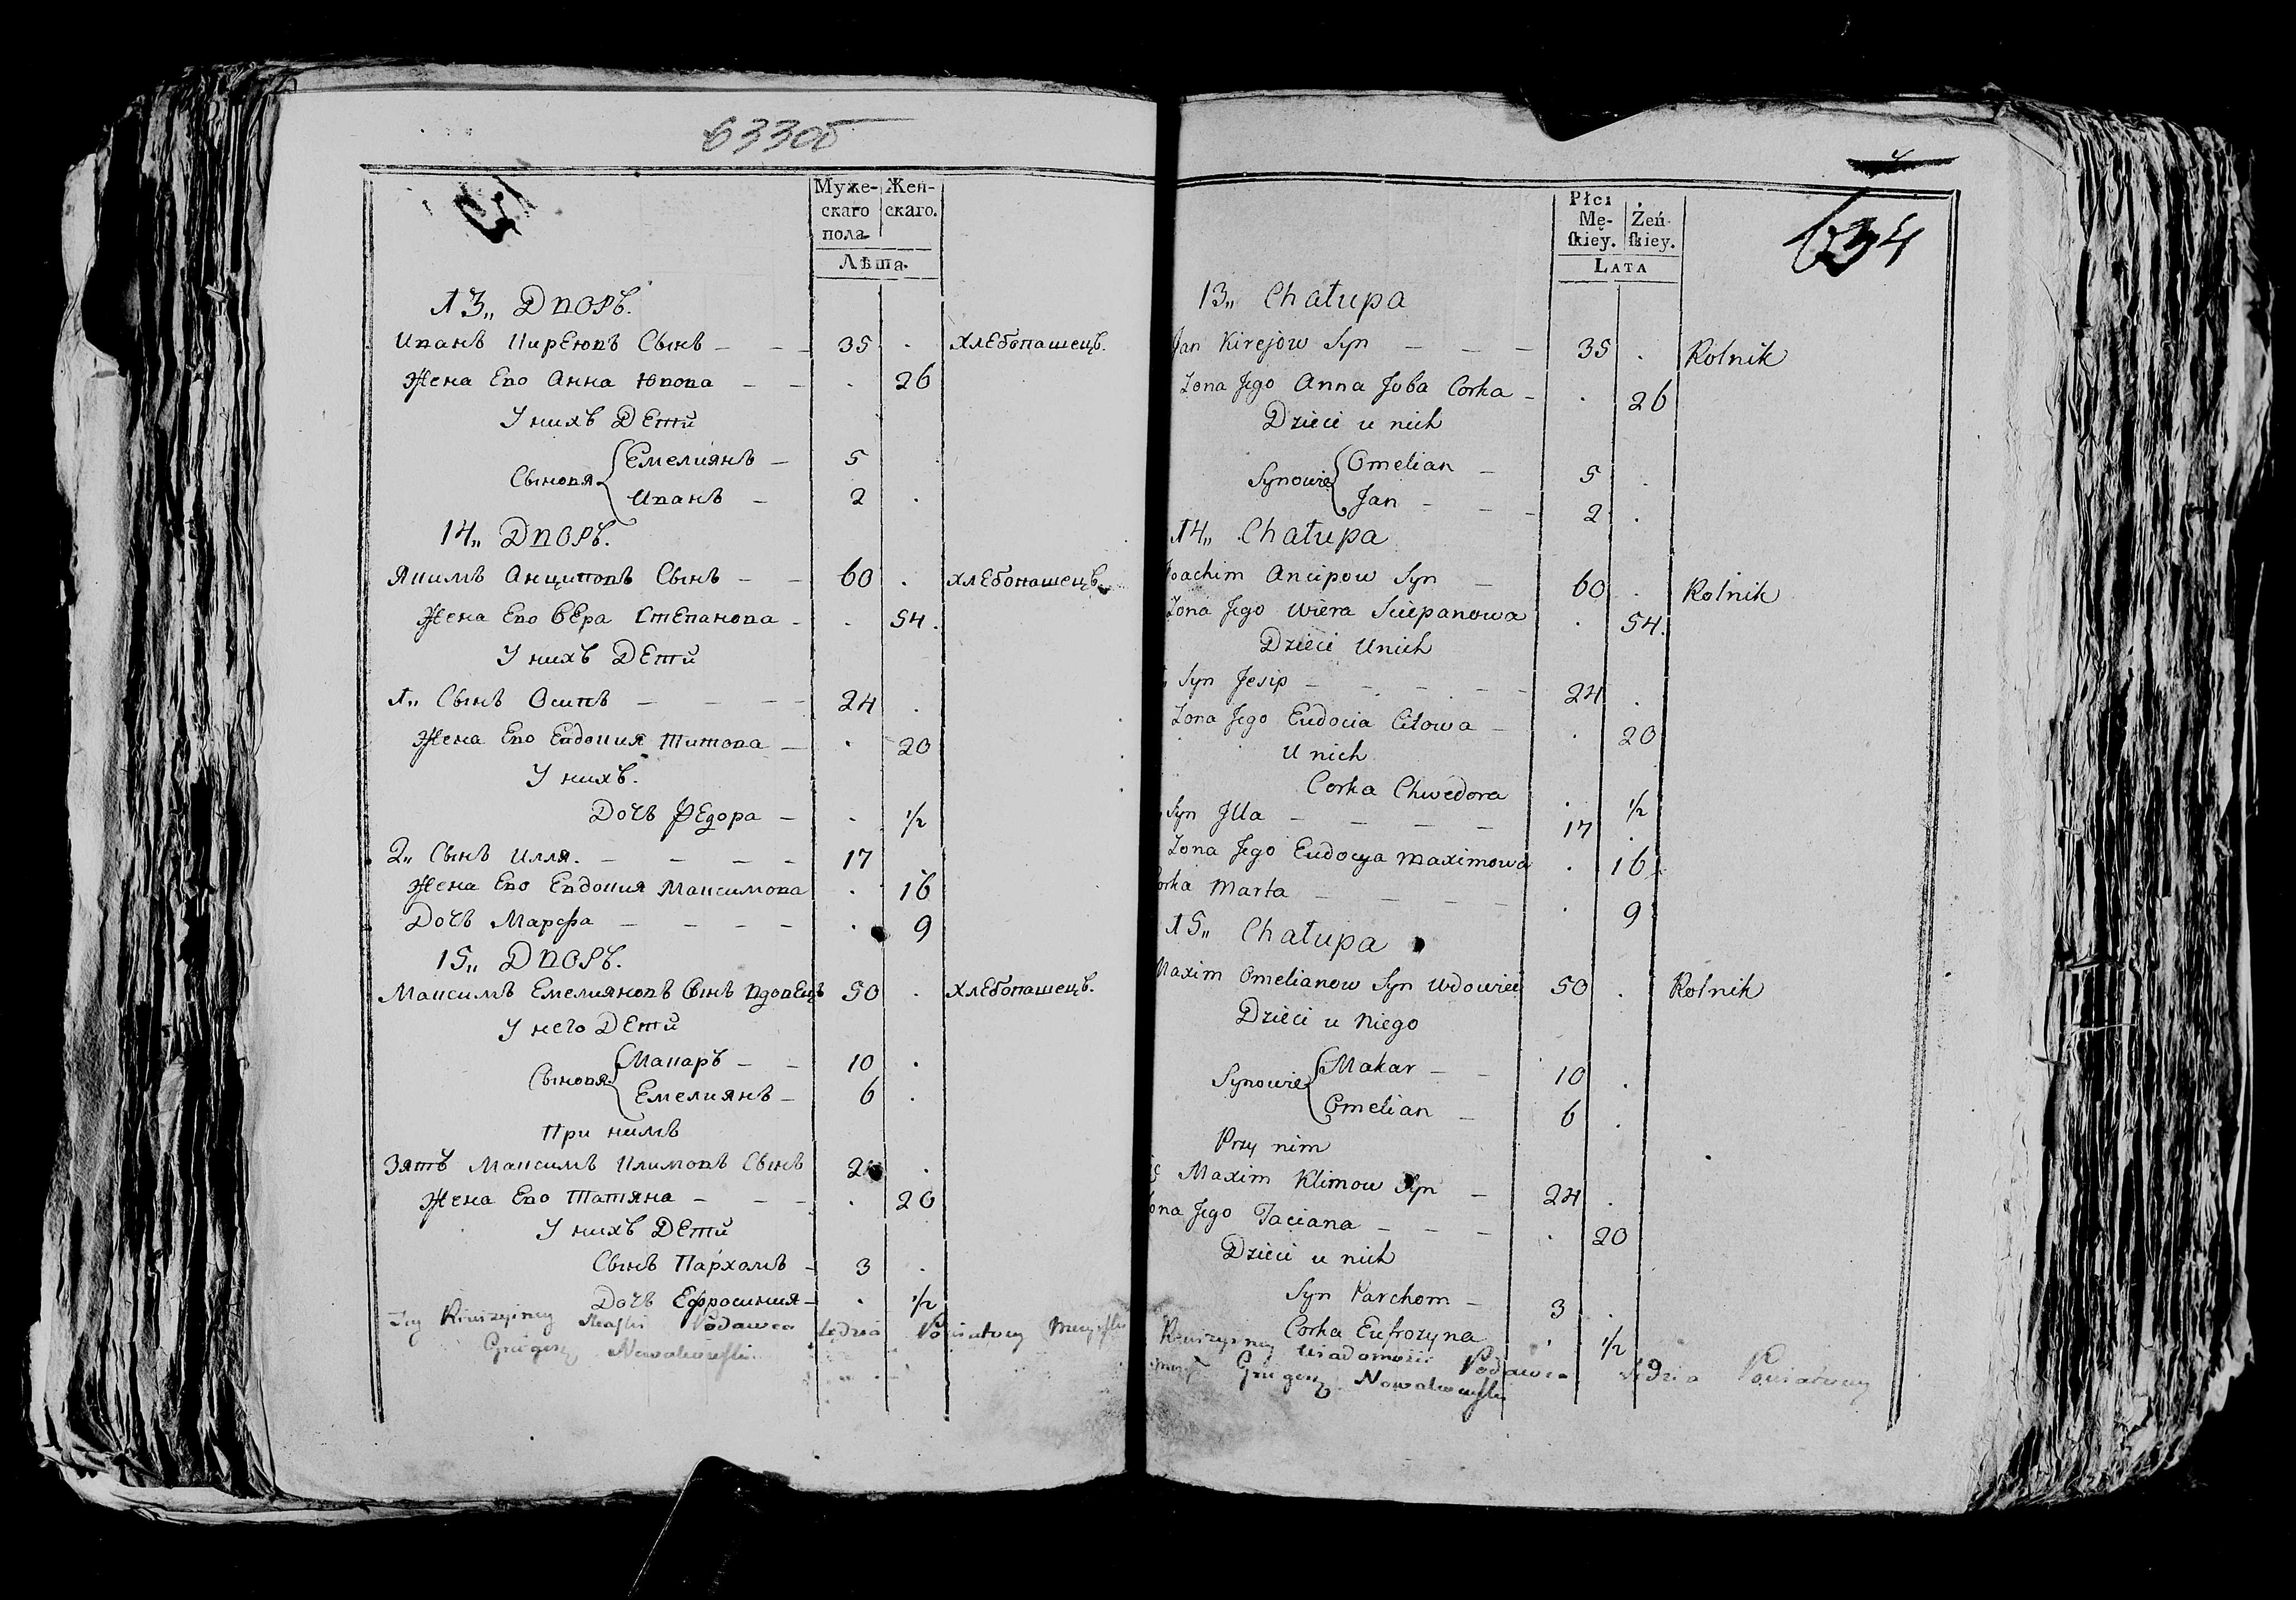 633об
Муже- Жен-
скаго скаго.
пола.
Лѣта.
13„ Дворъ.
Иванъ Кирѣювъ Сынъ — — — 35 . хлебопашецъ.
Жена Ево Анна Ювова — — . 26
У нихъ Дети
Сыновя { Емелиянъ — 5
Иванъ — 2 .
14„ Дворъ.
Якимъ Анциповъ Сынъ — — 60 . хлебопашецъ.
Жена Ево Вера Степанова — . 54.
У нихъ Дети
1„ Сынъ Осипъ — — — — 24 .
Жена Ево Евдокия Титова — . 20
У нихъ.
Дочъ Федора — . 1/2
2„ Сынъ Илля. — — — — 17
Жена Ево Евдокия Максимова . 16
Дочъ Марфа — — — — . 9
15„ Дворъ.
Максимъ Емелияновъ Сынъ вдовецъ 50 . хлебопашецъ.
У него Дети
Сыновя { Макаръ — — 10 .
Емелиянъ — 6 .
При нимъ
Зятъ Максимъ Климовъ Сынъ 24 .
Жена Ево Татяна — — — . 20
У нихъ Дети
Сынъ Пархомъ — 3 .
Дочъ Ефросиния — . 1/2
Podawca Sędzia Powiatowy
Grzegorz Nowakowski
634
Płci
Mę- Żeń-
ſkiey. ſkiey.
LATA
13„ Chałupa
Jan Kirejow Syn — — — 35 . Rolnik
Zona Jego Anna Joba Corka — . 26
Dzieci u nich
Synowie { Omelian — 5 .
Jan — — — 2 .
14„ Chałupa
Joachim Ancipow Syn — 60 . Rolnik
Zona Jego Wiera Sciepanowa . 54.
Dzieci Unich
Syn Jesip — — — — — 24 .
Zona Jego Eudocia Citowa — . 20
U nich
Corka Chwedora . 1/2
Syn Jlla — — — — 17 .
Zona Jego Eudocya Maximowa . 16
Corka Marta — — — — . 9
15„ Chałupa
Maxim Omelianow Syn Wdowiec 50 . Rolnik
Dzieci u Niego
Synowie { Makar — — 10 .
Omelian — 6 .
Przy nim
Maxim Klimow Syn — 24 .
Zona Jego Taciana — — — . 20
Dzieci u nich
Syn Parchom — 3 .
Corka Eufrozyna . 1/2
Wiadomości Podawca Sędzia Powiatowy
Grzegorz Nowakowski